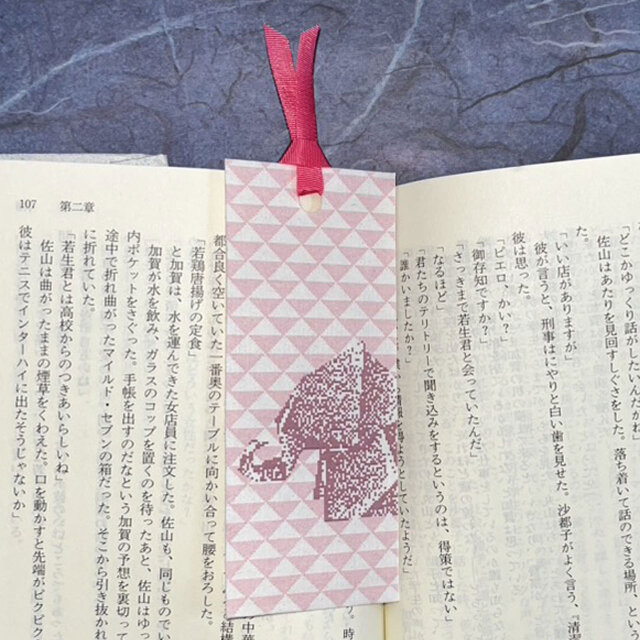 「どこかゆっくり話がしたいんだけれ
佐山はあたりを見回すしぐさをした。落ち着いて話のできる場所
た。
「いい店がありますが」
彼が言うと、刑事はにやりと白い歯を見せた。沙都子がよく言う、「清
彼は思った。
「ピエロ、かい?」
「御存知ですか?」
「さっきまで若生君と会っていたんだ」
「なるほど」
「君たちのテリトリーで聞き込みをするというのは、得策ではない」
「誰かいましたか?」
得ようとしていたようだ
107 第二章
都合良く空いていた一番奥のテーブルに向かい合って腰をおろした。
「若鶏唐揚げの定食」
と加賀は、水を運んできた女店員に注文した。佐山も、同じものでい
加賀が水を飲み、ガラスのコップを置くのを待ったあと、佐山はゆっ
内ポケットをさぐった。手帳を出すのだなという加賀の予想を裏切って
途中で折れ曲がったマイルド・セブンの箱だった。そこから引き抜かれ
に折れていた。
「若生君とは高校からのつきあいらしいね」
佐山は曲がったままの煙草をくわえた。口を動かすと先端がピクピク
彼はテニスでインターハイに出たそうじゃないか」